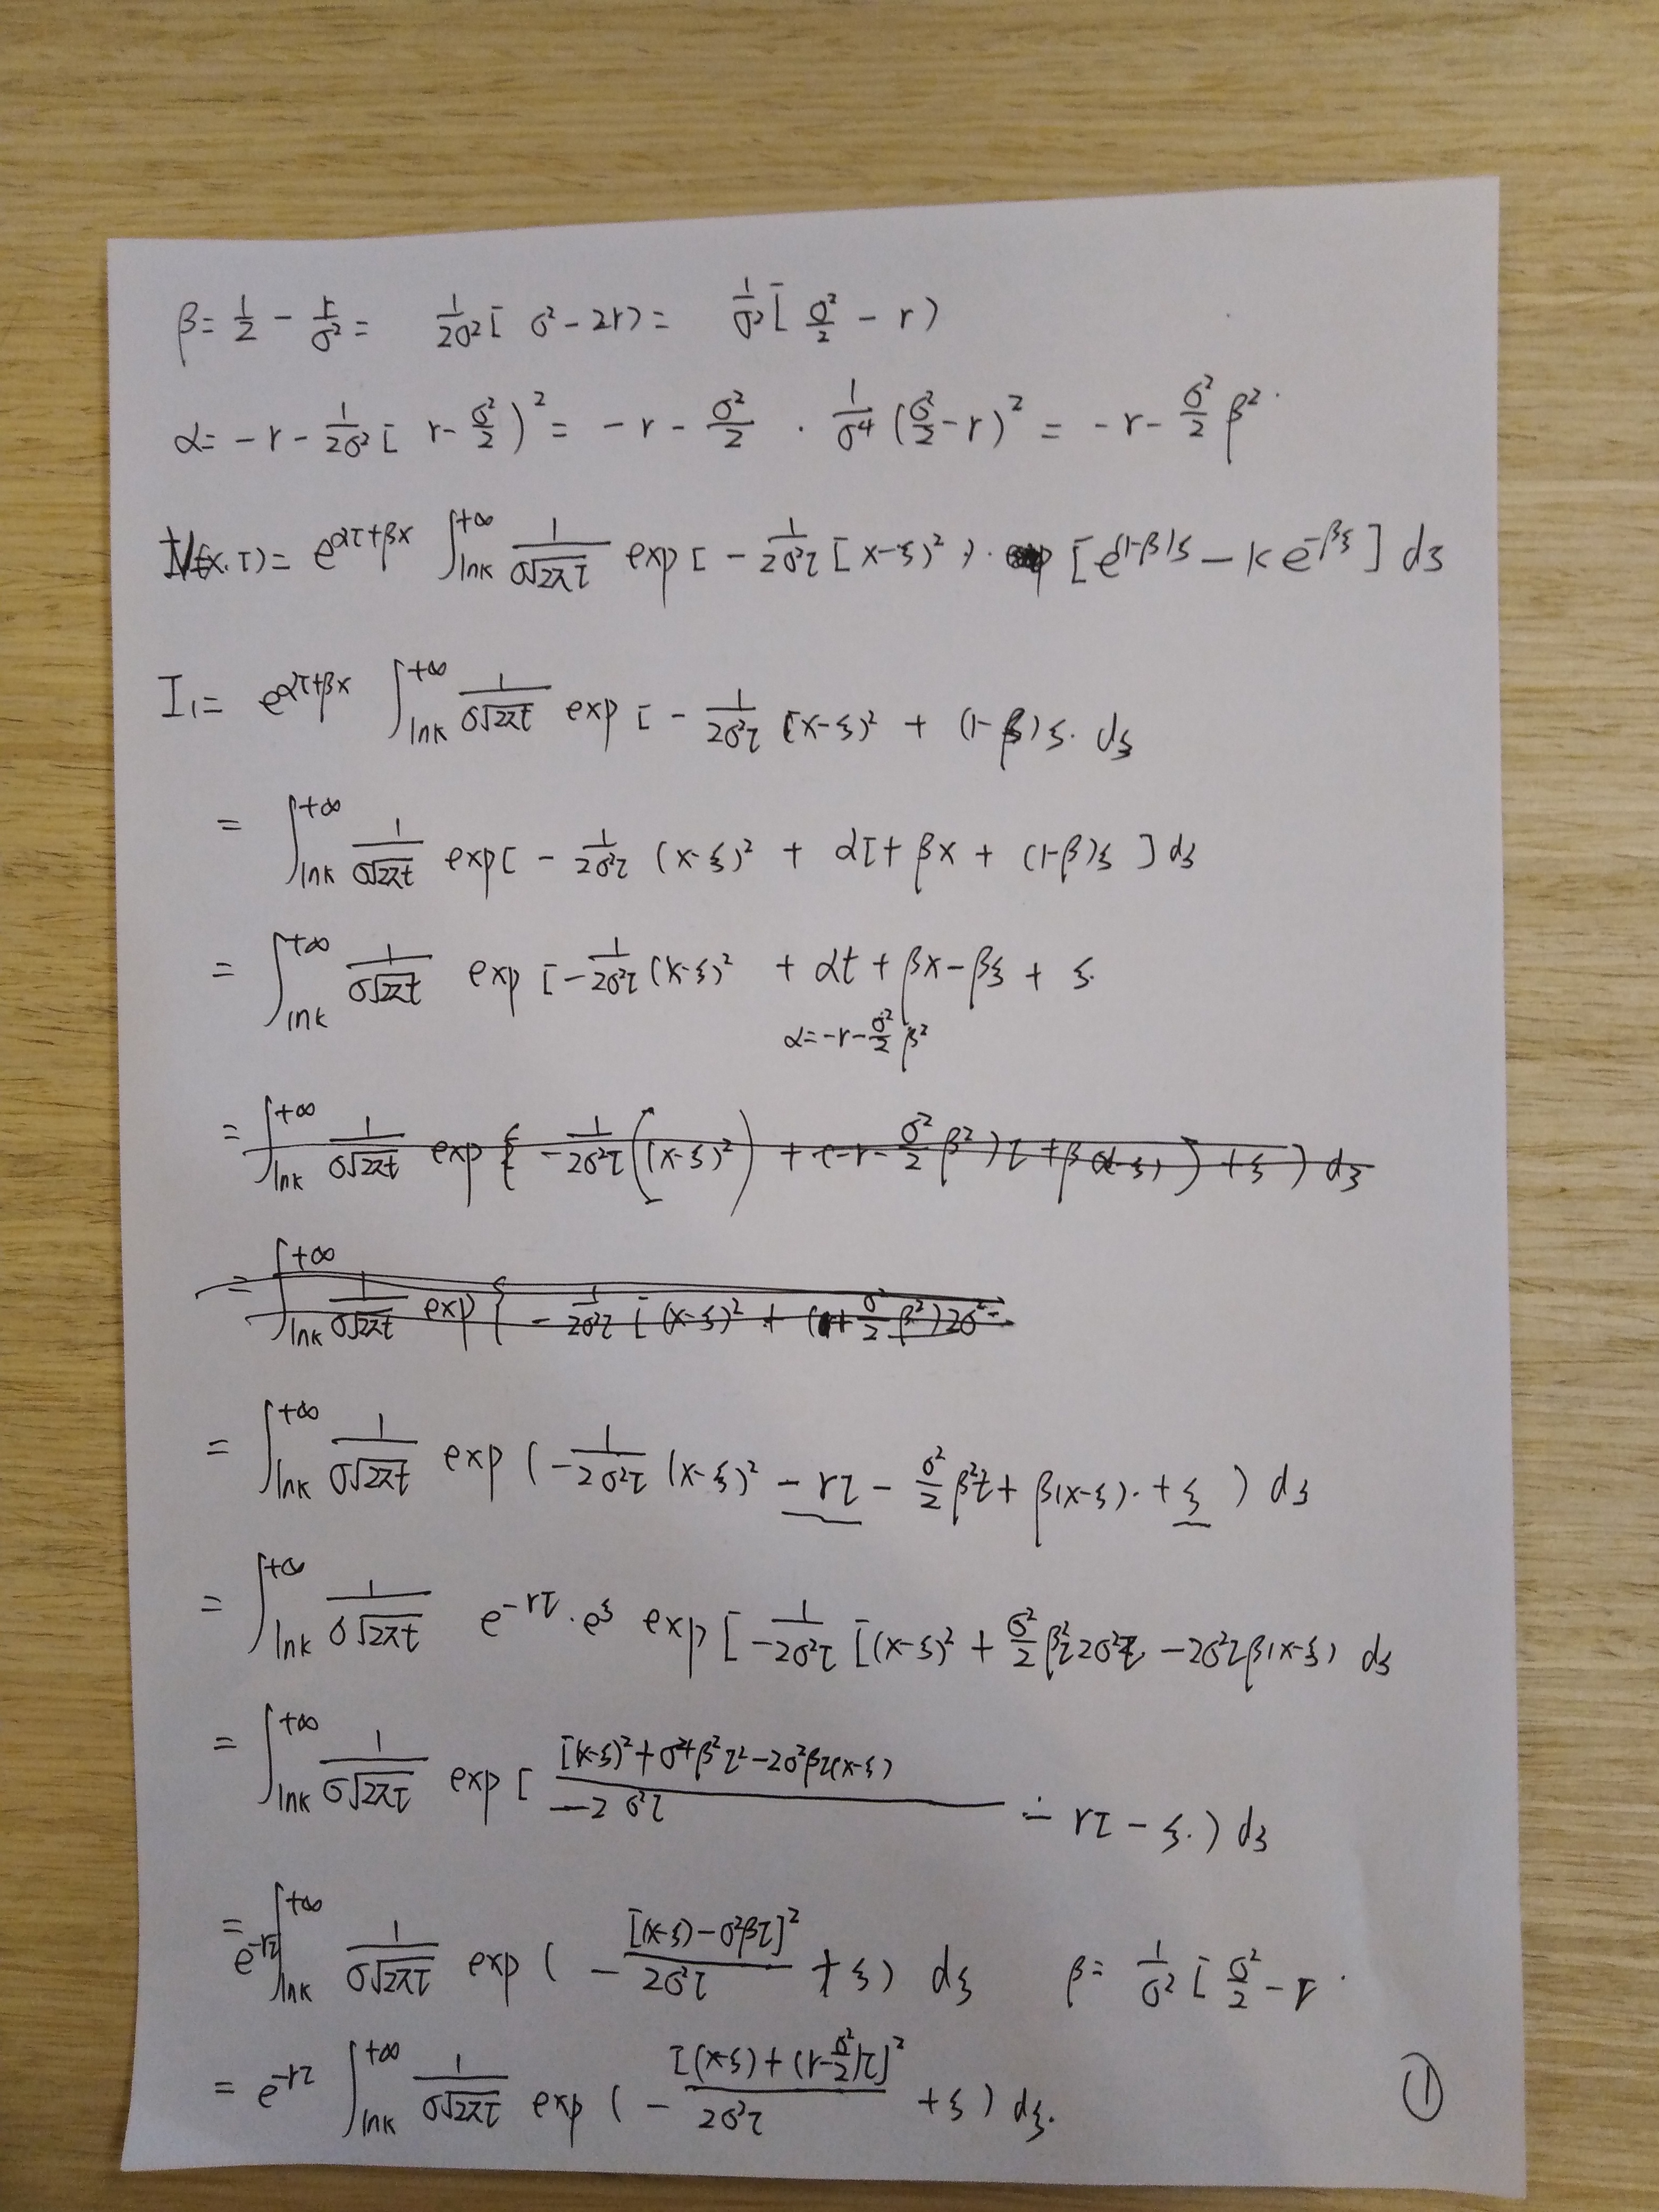 β = 1/2 - r/σ² = 1/2σ² [ σ² - 2r) = 1/σ² [ σ²/2 - r )
α = -r - 1/2σ² [ r - σ²/2 )² = -r - σ²/2 · 1/σ⁴ (σ²/2 - r)² = -r - σ²/2 β² .
V(x.τ) = e^{ατ+βx} ∫_{lnk}^{+∞} 1/σ√2πτ exp [ - 1/2σ²τ [ x-ξ)² ) · [ e^{(1-β)ξ} - k e^{-βξ} ] dξ
I₁ = e^{ατ+βx} ∫_{lnk}^{+∞} 1/σ√2πt exp [ - 1/2σ²τ [x-ξ)² + (1-β)ξ. dξ
= ∫_{lnk}^{+∞} 1/σ√2πt exp[ - 1/2σ²τ (x-ξ)² + ατ + βx + (1-β)ξ ] dξ
= ∫_{lnk}^{+∞} 1/σ√2πt exp [ - 1/2σ²τ (x-ξ)² + αt + βx - βξ + ξ.
α = -r - σ²/2 β²
= ∫_{lnk}^{+∞} 1/σ√2πt exp { - 1/2σ²τ ((x-ξ)²) + (-r - σ²/2 β²)τ + β(x-ξ) ) + ξ ) dξ
= ∫_{lnk}^{+∞} 1/σ√2πt exp { - 1/2σ²τ [ (x-ξ)² + (r + σ²/2 β²) 2σ²
= ∫_{lnk}^{+∞} 1/σ√2πt exp ( - 1/2σ²τ (x-ξ)² - rτ - σ²/2 β²τ + β(x-ξ) . + ξ ) dξ
= ∫_{lnk}^{+∞} 1/σ√2πt e^{-rτ} · e^ξ exp [ 1/-2σ²τ [(x-ξ)² + σ²/2 β²τ 2σ²τ - 2σ²τβ(x-ξ) dξ
= ∫_{lnk}^{+∞} 1/σ√2πτ exp [ [(x-ξ)² + σ⁴β²τ² - 2σ²βτ(x-ξ) / -2σ²τ - rτ - ξ. ) dξ
= e^{-rτ} ∫_{lnk}^{+∞} 1/σ√2πτ exp ( - [(x-ξ) - σ²βτ]² / 2σ²τ + ξ ) dξ β = 1/σ² [ σ²/2 - r .
= e^{-rτ} ∫_{lnk}^{+∞} 1/σ√2πτ exp ( - [(x-ξ) + (r - σ²/2)τ]² / 2σ²τ + ξ ) dξ. ①